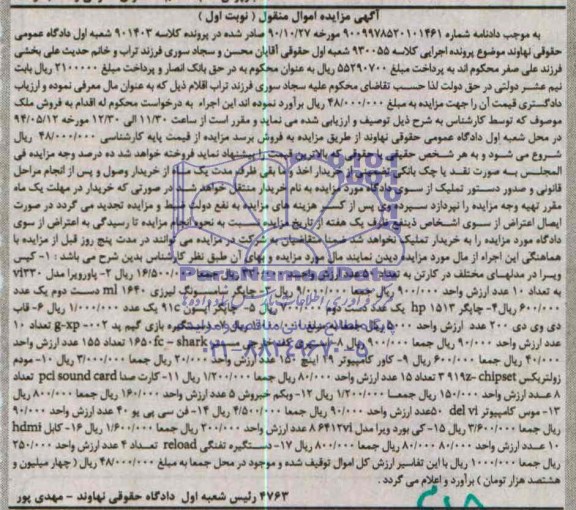 آگهی مزایده اموال منقول ( نوبت اول )
به موجب دادنامه شماره ۹۰۰۹۹۷۸۵۲۰۱۰۱۴۶۱ مورخه ۹۰/۱۰/۲۷ صادر شده در پرونده کلاسه ۹۰۱۴۰۳ شعبه اول دادگاه عمومی
حقوقی نهاوند موضوع پرونده اجرایی کلاسه ۹۳۰۰۵۵ شعبه اول حقوقی آقایان محسن و سجاد سوری فرزند تراب و خانم حدیث علی بخشی
فرزند علی صفر محکوم اند به پرداخت مبلغ ۵۵۲۹۰۷۰۰ ریال به عنوان محکوم به در حق بانک انصار و پرداخت مبلغ ۲۱۰۰۰۰۰ ریال بابت
نیم عشر دولتی در حق دولت لذا حسب تقاضای محکوم علیه سجاد سوری فرزند تراب اقلام ذیل که به عنوان مال معرفی نموده و ارزیاب
دادگستری قیمت آن را جهت مزایده به مبلغ ۴۸/۰۰۰/۰۰۰ ریال برآورد نموده اند این اجراء به درخواست محکوم له اقدام به فروش ملک
موصوف که توسط کارشناس به شرح ذیل توصیف و ارزیابی شده می نماید و مقرر است از ساعت ۱۱/۳۰ الی ۱۲/۳۰ مورخه ۹۴/۰۵/۱۲
در محل شعبه اول دادگاه عمومی حقوقی نهاوند از طریق مزایده به فروش برسد مزایده از قیمت پایه کارشناسی ۴۸/۰۰۰/۰۰۰ ریال
شروع می شود و به هر شخص حقیقی یا حقوقی که بالاترین قیمت را پیشنهاد نماید فروخته خواهد شد ده درصد وجه مزایده فی
المجلس به صورت نقد یا چک بانکی تضمینی از خریدار اخذ و ما بقی ظرف مدت یک ماه از خریدار وصول و پس از انجام مراحل
قانونی و صدور دستور تملیک از سوی دادگاه مورد مزایده به نام خریدار منتقل خواهد شد در صورتی که خریدار در مهلت یک ماه
مقرر بقیه وجه مزایده را نپردازد سپرده وی پس از کسر هزینه های مزایده به نفع دولت ضبط و مزایده تجدید می گردد در صورت
ایصال اعتراض از سوی اشخاص ذینفع ظرف یک هفته از تاریخ مزایده نسبت به نحوه انجام مزایده تا رسیدگی به اعتراض از سوی
دادگاه مورد مزایده را به خریدار تملیک نخواهد شد ضمنا متقاضیان به شرکت در مزایده می توانند در مدت پنج روز قبل از مزایده با
هماهنگی این اجراء از مال مورد مزایده دیدن نمایند مال مورد مزایده و بهای آن طبق نظر کارشناس بدین شرح می باشد : ۱- کیس
ویرا در مدلهای مختلف در کارتن به تعداد ارزش واحد ریال جمعا ۱۶/۵۰۰/۰۰۰ ریال ۲- پاورویرا مدل vi330
به تعداد ۱۰ عدد ارزش واحد ۹۰۰/۰۰۰ ریال جمعا ۹/۰۰۰/۰۰۰ ریال ۳- چاپگر سامسونگ لیزری ml ۱۶۴۰ دست دوم یک عدد
۶۰۰/۰۰۰ ریال ۴- چاپگر hp ۱۵۱۳ یک عدد دست دوم ریال ۵- چاپگر اپسون c۹۱ یک عدد ۱/۰۰۰/۰۰۰ ریال ۶- قاب
دی وی دی ۲۰۰ عدد ارزش واحد ریال جمعا ریال دستگیره بازی گیم پد g-xp -۰۰۲ تعداد ۱۰
عدد ارزش واحد ۹۰/۰۰۰ ریال جمعا ۹۰۰/۰۰۰ ریال ۸- ۱۶۵۰ fc - shark تعداد ۱۵۵ عدد ارزش واحد
۴۰/۰۰۰ ریال جمعا ۶۰۰/۰۰۰ ریال ۹- کاور کامپیوتر ۲۹ اینچ ۱۵۰ عدد ارزش واحد ۲۰/۰۰۰ ریال جمعا ۳/۰۰۰/۰۰۰ ریال ۱۰- مودم
زولتریکس 919z- chipset ۳ تعداد ۱۵ عدد ارزش واحد ۸۰/۰۰۰ ریال جمعا ۱/۲۰۰/۰۰۰ ریال ۱۱- کارت صدا pci sound card تعداد
۸ عدد ارزش واحد ۱۵۰/۰۰۰ ریال جمعا ۱/۲۰۰/۰۰۰ ریال ۱۲- وبکم خروش ۵ عدد ارزش واحد ۱۶۰/۰۰۰ ریال جمعا ۸۰۰/۰۰۰ ریال
۱۳- موس کامپیوتر del vi ۵۰عدد ارزش واحد ۹۰/۰۰۰ ریال جمعا ۴/۵۰۰/۰۰۰ ریال ۱۴- فن سی پی یو ۴۰ عدد ارزش واحد ۹۰/۰۰۰
ریال جمعا ۳/۶۰۰/۰۰۰ ریال ۱۵- کی بورد ویرا مدل 6412vi ۸ عدد ارزش واحد ۲۰۰/۰۰۰ ریال جمعا ۱/۶۰۰/۰۰۰ ریال ۱۶- کابل hdmi
۱۰ عدد ارزش واحد ۸۰/۰۰۰ ریال جمعا ۸۰۰/۰۰۰ ریال ۱۷- دستگیره تفنگی reload تعداد ۴ عدد ارزش واحد ۲۵۰/۰۰۰
ریال جمعا ۱/۰۰۰/۰۰۰ ریال با این تفاسیر ارزش کل اموال توقیف شده و موجود در محل جمعا به مبلغ ۴۸/۰۰۰/۰۰۰ ریال ( چهار میلیون و
هشتصد هزار تومان ) برآورد و اعلام می گردد .
۴۷۶۳ رئیس شعبه اول دادگاه حقوقی نهاوند - مهدی پور
ParsNamadData
۰۲۱-۸۸۳۴۹۶۷۰-۵